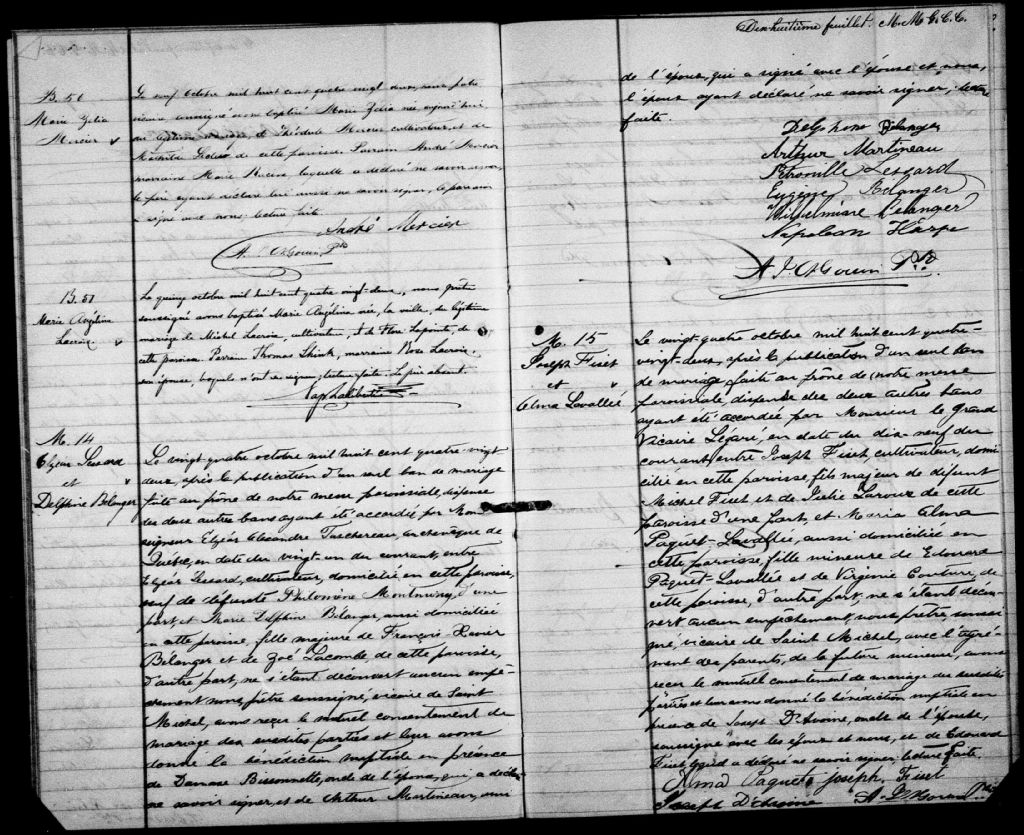 B. 56
Marie Zélia
Mercier
Le neuf octobre mil huit cent quatre vingt deux, nous prêtre
vicaire soussigné avons baptisé Marie Zélia née aujourd'hui
du légitime mariage de Théodule Mercier cultivateur, et de
Mathilde de cette paroisse. Parrain André Mercier
marraine Marie Racine laquelle a déclaré ne savoir signer,
le père ayant déclaré lui aussi ne savoir signer, le parrain
a signé avec nous; lecture faite.
André Mercier
A. Gouin Ptre
B. 57
Marie Angélina
Lacroix
Le quinze octobre mil huit cent quatre vingt-deux, nous prêtre
soussigné avons baptisé Marie Angélina née, la veille, du légitime
mariage de Michel Lacroix, cultivateur, & de Flore Lapointe, de
cette paroisse. Parrain Thomas marraine Rose Lacroix,
son épouse, lesquels n'ont su signer; lecture faite. Le père absent.
M. 14
Elzéar Lessard
et
Delphine Bélanger
Le vingt-quatre octobre mil huit cent quatre-vingt
deux, après la publication d'un seul ban de mariage
faite au prône de notre messe paroissiale, dispense
des deux autres bans ayant été accordée par Mon-
seigneur Elzéar Alexandre Taschereau, archevêque de
Québec, en date du vingt-un du courant, entre
Elzéar Lessard, cultivateur, domicilié en cette paroisse,
veuf de défunte Philomène Montminy, d'une
part, et Marie Delphine Bélanger, aussi domiciliée
en cette paroisse, fille majeure de François-Xavier
Bélanger et de Zoé Lacombe, de cette paroisse,
d'autre part, ne s'étant découvert aucun empê-
chement nous, prêtre soussigné, vicaire de Saint
Michel, avons reçu le mutuel consentement de
mariage des susdites parties et leur avons
donné la bénédiction nuptiale en présence
de Damase Bissonnette, oncle de l'époux, qui a déclaré
ne savoir signer, et de Arthur Martineau, ami
Dixhuitième feuillet. M. M G. C. C.
de l'époux, qui a signé avec l'épouse et nous,
l'époux ayant déclaré ne savoir signer; lecture
faite.
Delphine Bélanger
Arthur Martineau
Pétronille Lessard
Eugène Bélanger
Wilhelmine Belanger
Napoleon Harpe
A. Gouin Ptre
M. 15
Joseph Fiset
et
Alma Lavallée
Le vingt-quatre octobre mil huit cent quatre-
vingt-deux, après la publication d'un seul ban
de mariage, faite au prône de notre messe
paroissiale, dispense des deux autres bans
ayant été accordée par Monsieur le Grand
Vicaire Légaré, en date du dix-neuf du
courant, entre Joseph Fiset, cultivateur, domi-
cilié en cette paroisse, fils majeur de défunt
Michel Fiset et de Julie Laroux de cette
paroisse d'une part, et Maria Alma
Paquet-Lavallée, aussi domiciliée en
cette paroisse, fille mineure de Edouard
Paquet-Lavallée et de Virginie Couture, de
cette paroisse, d'autre part, ne s'étant décou-
vert aucun empêchement, nous prêtre, soussi-
gné, vicaire de Saint Michel, avec l'agré-
ment des parents, de la future mineure, avons
reçu le mutuel consentement de mariage des susdites
parties et leur avons donné la bénédiction nuptiale en
présence de Joseph D'Avoine, oncle de l'épouse,
soussigné avec les époux et nous, et de Edouard
Fiset, qui a déclaré ne savoir signer; lecture faite.
Alma Paquet Joseph Fiset
Joseph D'Avoine A. Gouin Ptre